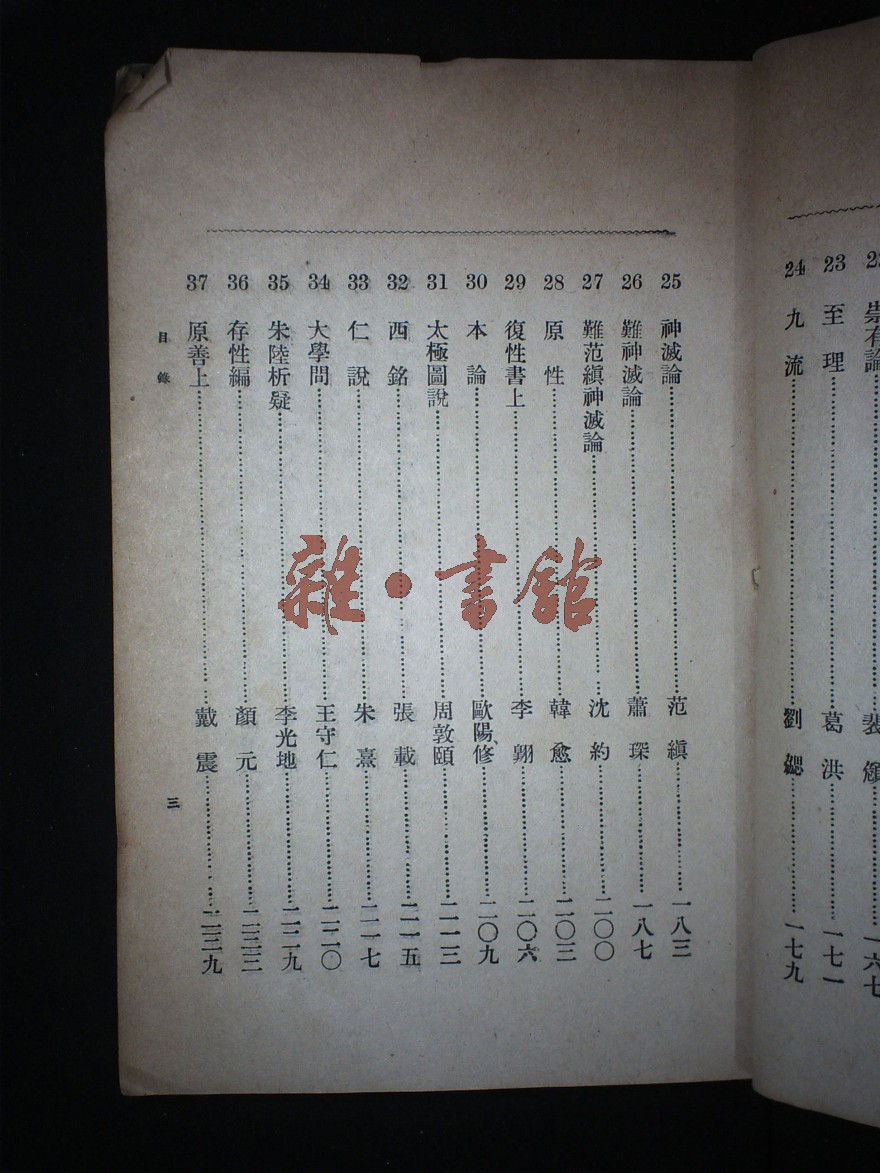 22 崇有論……裴頠……一六七
23 至理……葛洪……一七一
24 九流……劉勰……一七九
25 神滅論……范縝……一八三
26 難神滅論……蕭琛……一八七
27 難范縝神滅論……沈約……二〇〇
28 原性……韓愈……二〇三
29 復性書上……李翺……二〇六
30 本論……歐陽修……二〇九
31 太極圖說……周敦頤……二一三
32 西銘……張載……二一五
33 仁說……朱熹……二一七
34 大學問……王守仁……二二〇
35 朱陸析疑……李光地……二二九
36 存性編……顏元……二三三
37 原善上……戴震……二三九
目錄
三
雜·書館